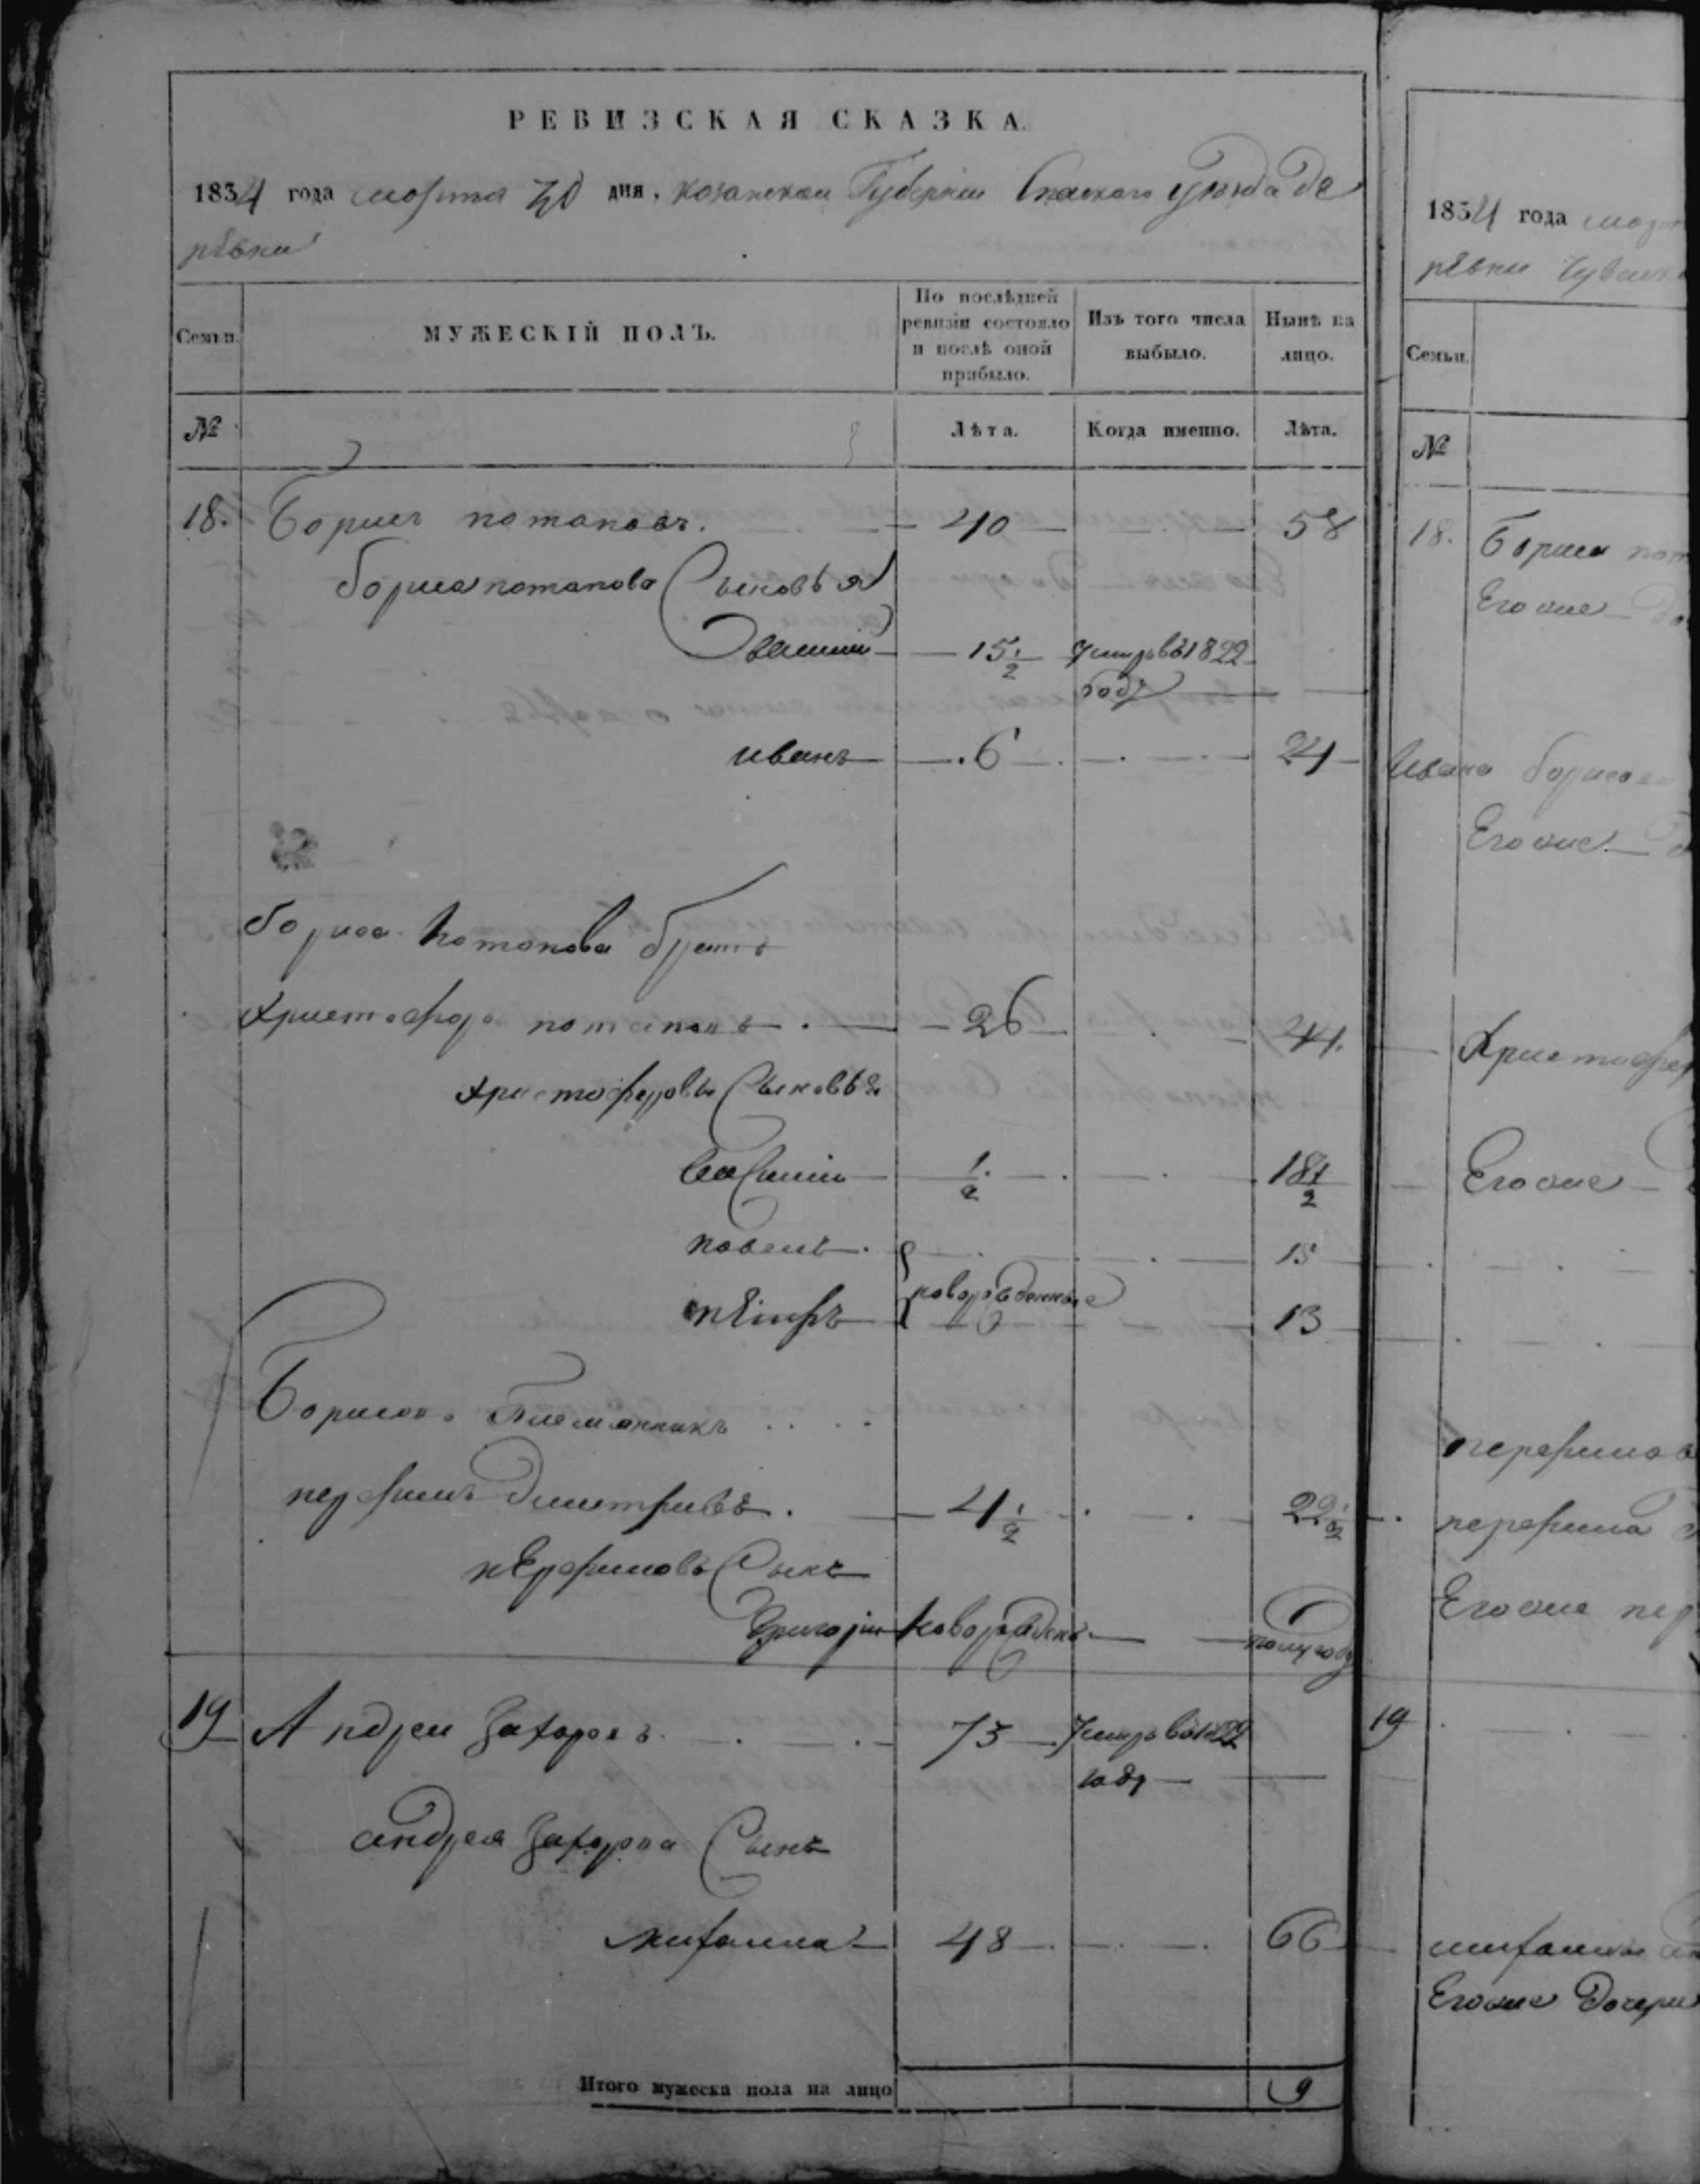 РЕВИЗСКАЯ СКАЗКА.
1834 года марта 30 дня. казанской Губернии Спаского Уѣзда де
ревни
Семьи.
МУЖЕСКІЙ ПОЛЪ.
По послѣдней ревизіи состояло и послѣ оной прибыло.
Изъ того числа выбыло.
Нынѣ на лицо.
№
Лѣта.
Когда именно.
Лѣта.
18. Борисъ потаповъ. 40 58
бориса потапова Сыновья
15 1/2 умиръ въ 1822
году
иванъ 6 24
бориса потапова братъ
христофоръ потаповъ 26 44.
христофоровы Сыновья
Василии 1/2 18 1/2
павелъ 15
новорожденные
пётръ 13
Борисовъ племянникъ
перфилъ Дмитривъ. 4 1/2 22 1/2
перфиловъ Сынъ
Григорiи новорожденъ полугоду
19 Андреи Захаровъ 73 умиръ въ 1822
году
андрея Захарова Сынъ
михаила 48 66
Итого мужеска пола на лицо 9
1834 года
ревни
Семьи.
№
18. Бориса
Егоже
Ивана борисова
Егоже
Егоже
перфила
Егоже
19
михаила
Егоже Дочери